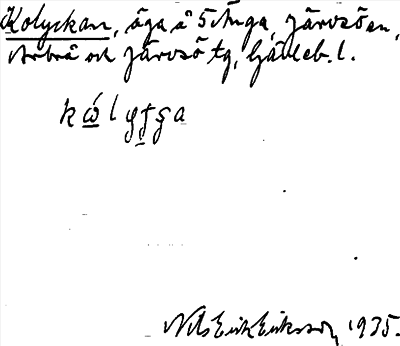 Kolyckan, äga å 5 Änga, Järvsö sn,
Arbrå och Järvsö tg, Gävleb. l.
Nils Erik Eriksson 1935.